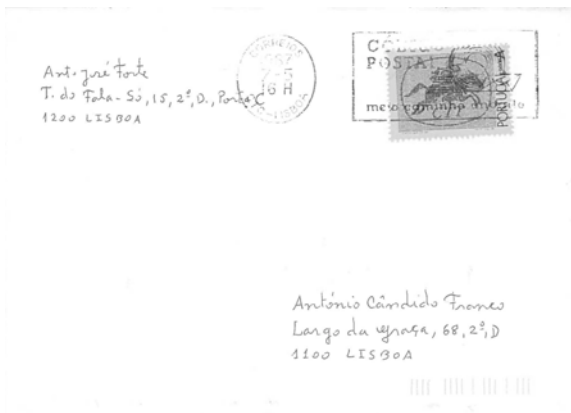 Ant. José Forte
T. do Fala-Só, 15, 2º, D., Porta C
1200 LISBOA
CORREIOS
7-5
16 H
LISBOA
CÓDIGO
POSTAL
meio caminho andado
PORTUGAL
António Cândido Franco
Largo da Graça, 68, 2º, D
1100 LISBOA